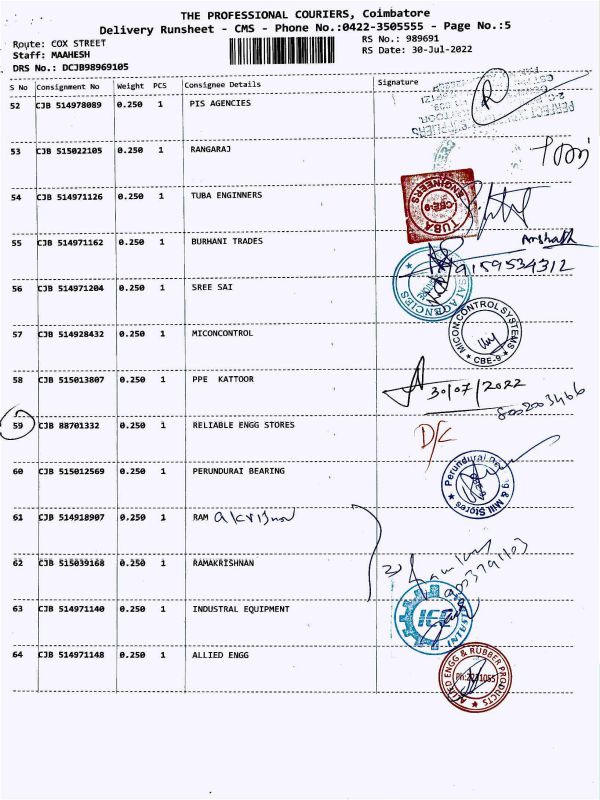 THE PROFESSIONAL COURIERS, Coimbatore
Delivery Runsheet - CMS - Phone No.:0422-3505555 - Page No.:5
Route: COX STREET
RS No.: 989691
Staff: MAAHESH
RS Date: 30-Jul-2022
DRS No.: DCJB98969105
S No Consignment No Weight PCS Consignee Details Signature
52 CJB 514978089 0.250 1 PIS AGENCIES
53 CJB 515022105 0.250 1 RANGARAJ
54 CJB 514971126 0.250 1 TUBA ENGINNERS
TUBA ENGINEERS CBE-9
55 CJB 514971162 0.250 1 BURHANI TRADES
Arshath
9159534312
56 CJB 514971204 0.250 1 SREE SAI
SAI AGENCIES
57 CJB 514928432 0.250 1 MICONCONTROL
MICON CONTROL SYSTEMS CBE-9
58 CJB 515013807 0.250 1 PPE KATTOOR
30/07/2022
59 CJB 88701332 0.250 1 RELIABLE ENGG STORES
D/C
60 CJB 515012569 0.250 1 PERUNDURAI BEARING
Perundurai & Mill Stores CBE-9
61 CJB 514918907 0.250 1 RAM
62 CJB 515039168 0.250 1 RAMAKRISHNAN
63 CJB 514971140 0.250 1 INDUSTRAL EQUIPMENT
64 CJB 514971148 0.250 1 ALLIED ENGG
ALLIED ENGG & RUBBER PRODUCTS